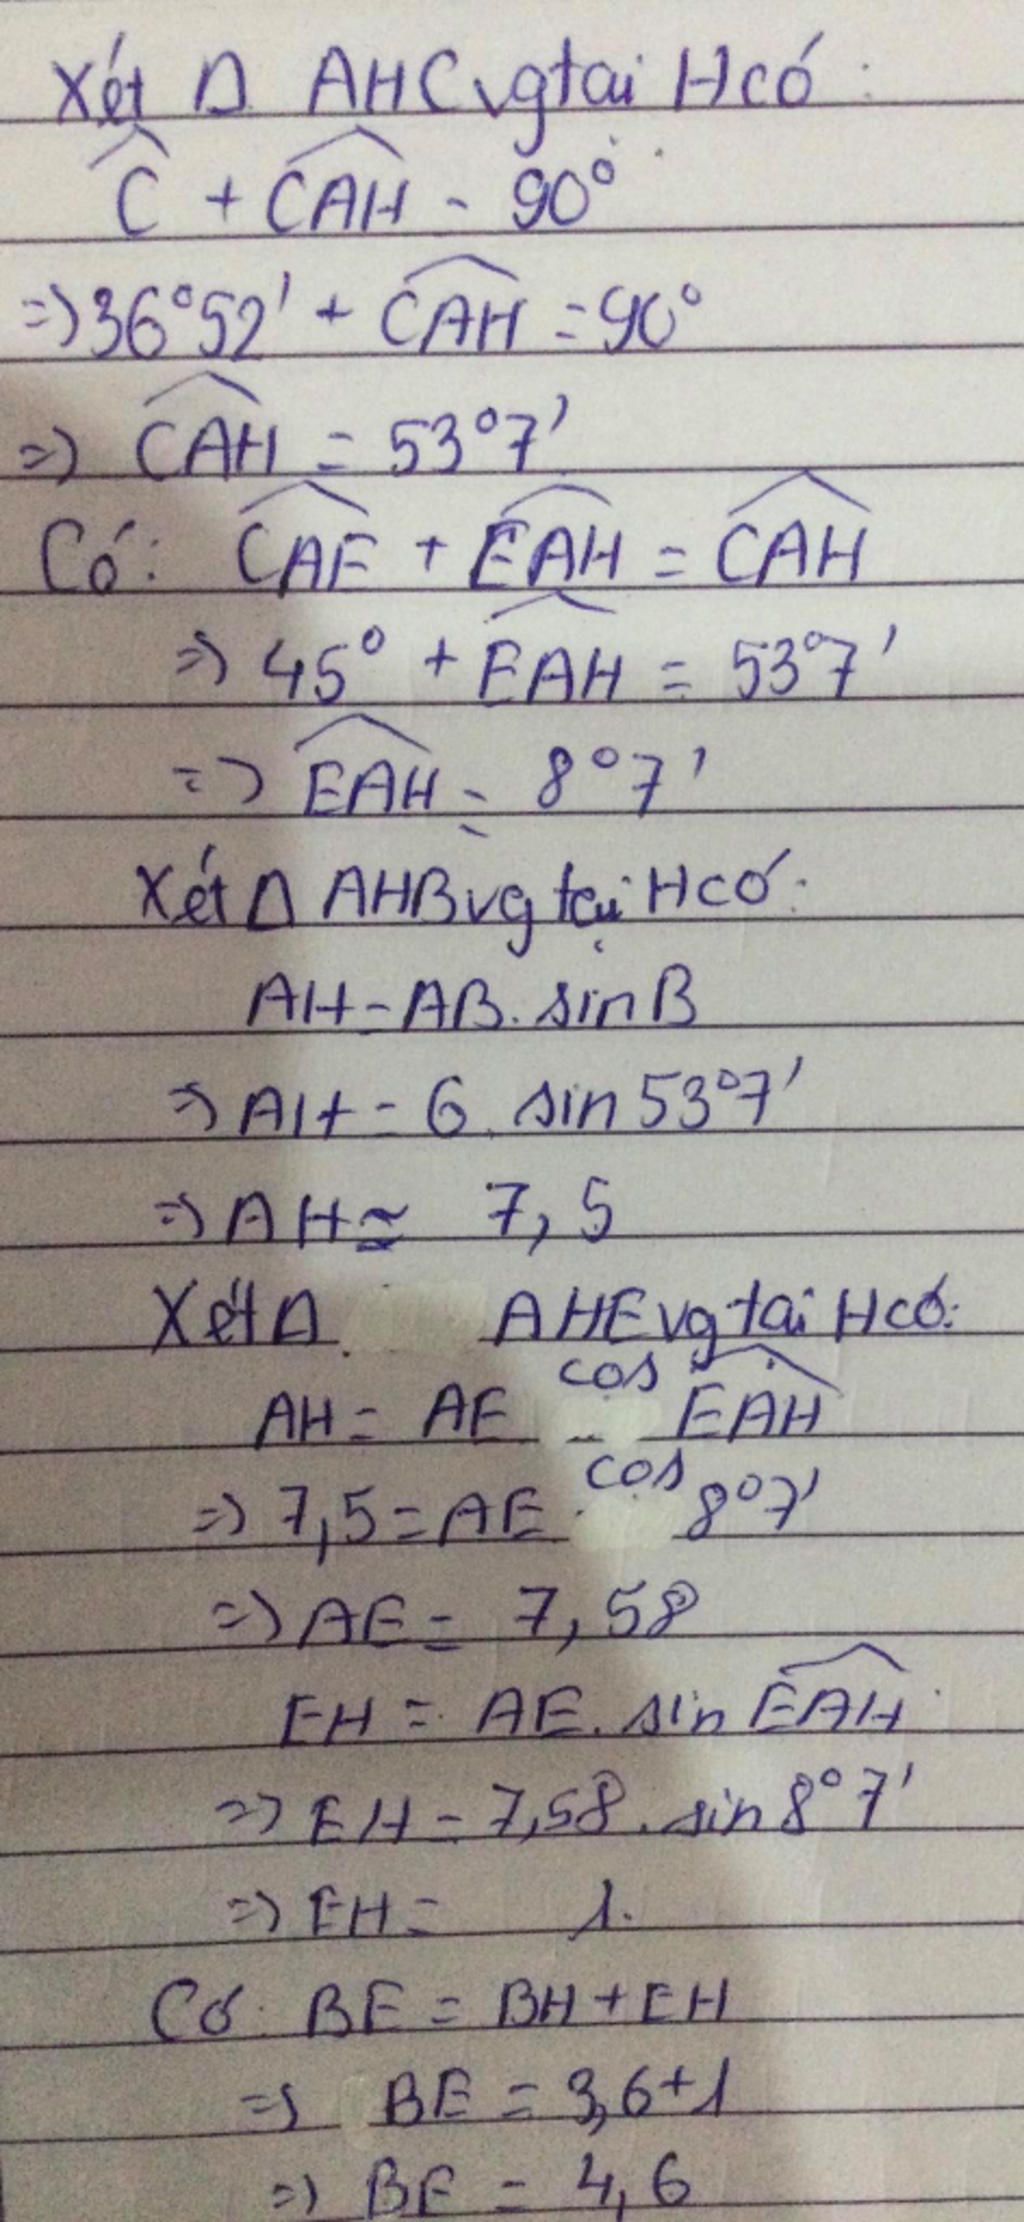 Xét Δ AHC vg tại H có:
Ĉ + CAH = 90°
=> 36°52' + CAH = 90°
=> CAH = 53°7'
Có: CAE + EAH = CAH
=> 45° + EAH = 53°7'
=> EAH = 8°7'
Xét Δ AHB vg tại H có:
AH = AB. sin B
=> AH = 6. sin 53°7'
=> AH ≃ 7,5
Xét Δ AHE vg tại H có:
AH = AE . cos EAH
=> 7,5 = AE . cos 8°7'
=> AE = 7,58
EH = AE. sin EAH
=> EH = 7,58. sin 8°7'
=> EH = 1.
Có: BE = BH + EH
=> BE = 3,6+1
=> BE = 4,6